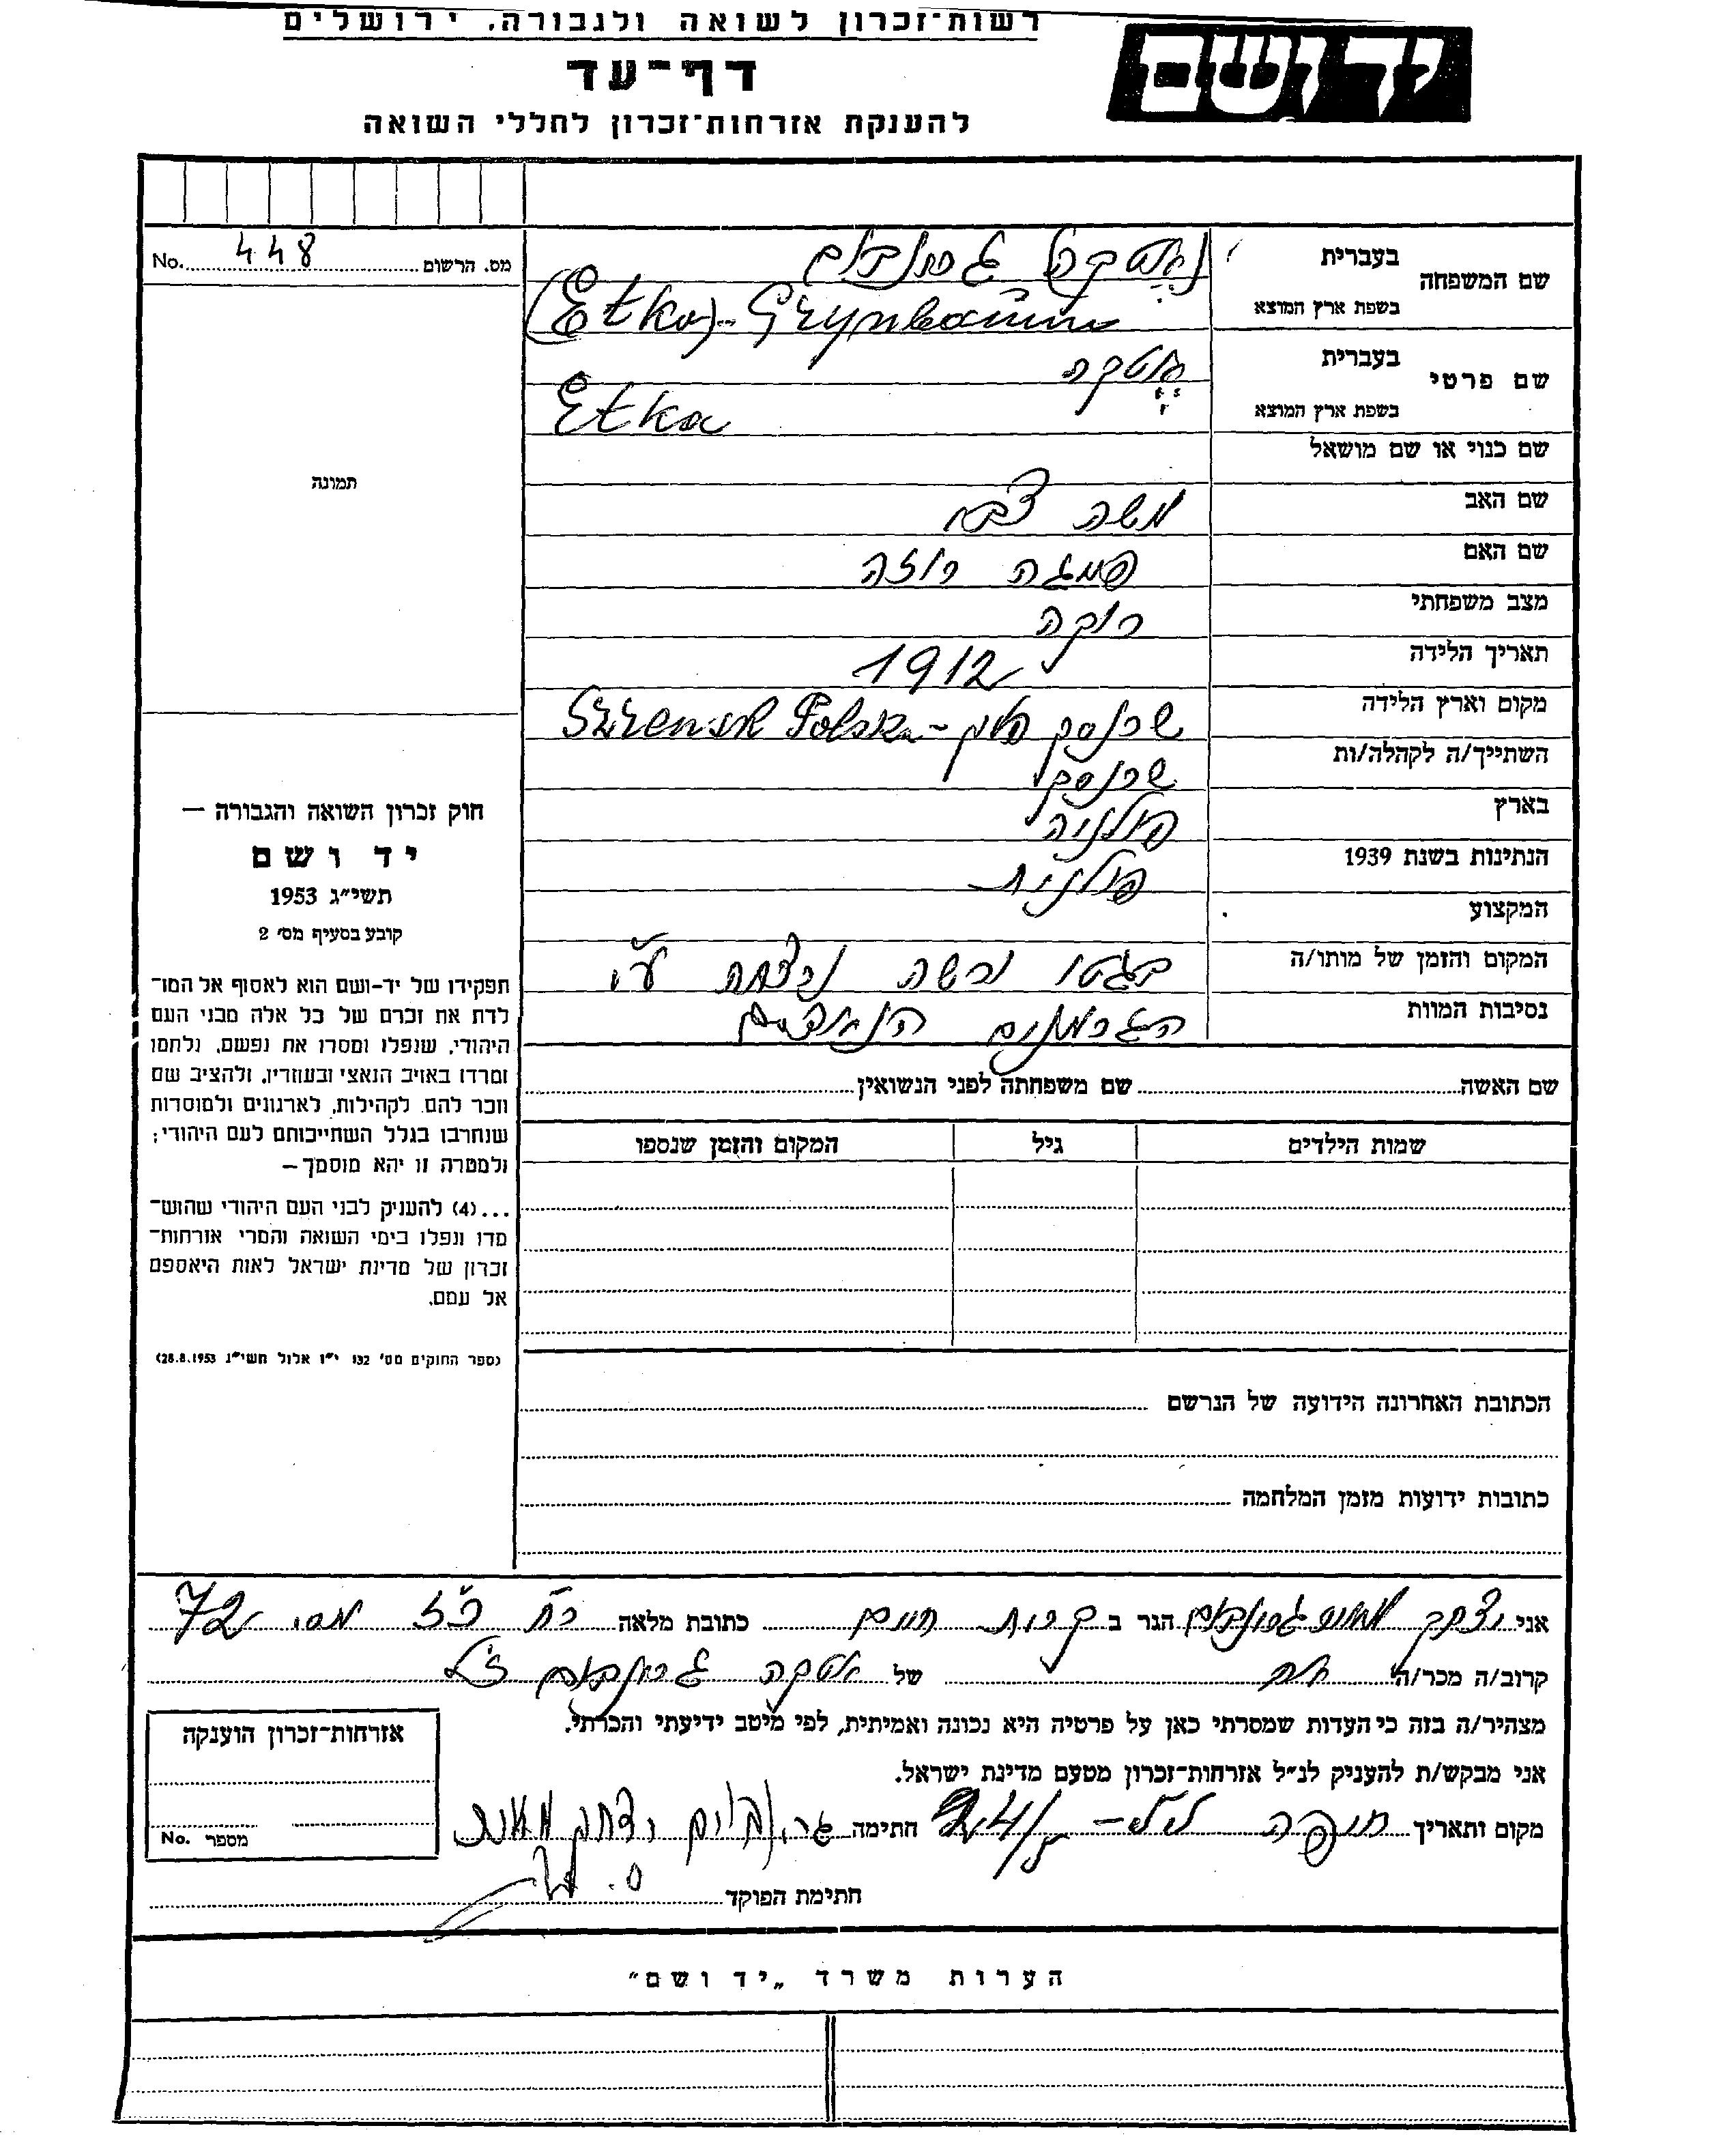 רשות־זכרון לשואה ולגבורה, ירושלים
יד ושם
דף־עד
להענקת אזרחות־זכרון לחללי השואה
מס. הרשום No. 448
תמונה
חוק זכרון השואה והגבורה —
יד ושם
תשי״ג 1953
קובע בסעיף מס׳ 2
תפקידו של יד-ושם הוא לאסוף אל המו־
לדת את זכרם של כל אלה מבני העם
היהודי, שנפלו ומסרו את נפשם, נלחמו
ומרדו באויב הנאצי ובעוזריו, ולהציב שם
וזכר להם, לקהילות, לארגונים ולמוסדות
שנחרבו בגלל השתייכותם לעם היהודי;
ולמטרה זו יהא מוסמך—
...(4) להעניק לבני העם היהודי שהוש־
מדו ונפלו בימי השואה והמרי אזרחות־
זכרון של מדינת ישראל לאות היאספם
אל עמם.
(ספר החוקים מס׳ 132 י״ז אלול תשי״ג 28.8.1953)
שם המשפחה
בעברית (אטקה) גרינבוים
בשפת ארץ המוצא (Etka)-Grynbaum
שם פרטי
בעברית אטקה
בשפת ארץ המוצא Etka
שם כנוי או שם מושאל
שם האב משה צבי
שם האם פייגה רוזה
מצב משפחתי רוקה
תאריך הלידה 1912
מקום וארץ הלידה שרנסק פולין - Szrensk Polska
השתייך/ה לקהלה/ות שרנסק
בארץ פולניה
הנתינות בשנת 1939 פולנית
המקצוע
המקום והזמן של מותו/ה בגטו ורשה נרצחה ע״י
נסיבות המוות הגרמנים הנאצים
שם האשה שם משפחתה לפני הנשואין
שמות הילדים גיל המקום והזמן שנספו
הכתובת האחרונה הידועה של הנרשם
כתובות ידועות מזמן המלחמה
אני יצחק גרינבוים הגר ב קרית חיים כתובת מלאה רח׳ מס. 72
קרוב/ה מכר/ה אח של אטקה גרינבוים ז״ל
מצהיר/ה בזה כי העדות שמסרתי כאן על פרטיה היא נכונה ואמיתית, לפי מיטב ידיעתי והכרתי.
אני מבקש/ת להעניק לנ״ל אזרחות־זכרון מטעם מדינת ישראל.
מקום ותאריך חיפה 24/5 חתימה גרינבוים יצחק
חתימת הפוקד
אזרחות-זכרון הוענקה
מספר No.
הערות משרד „יד ושם״